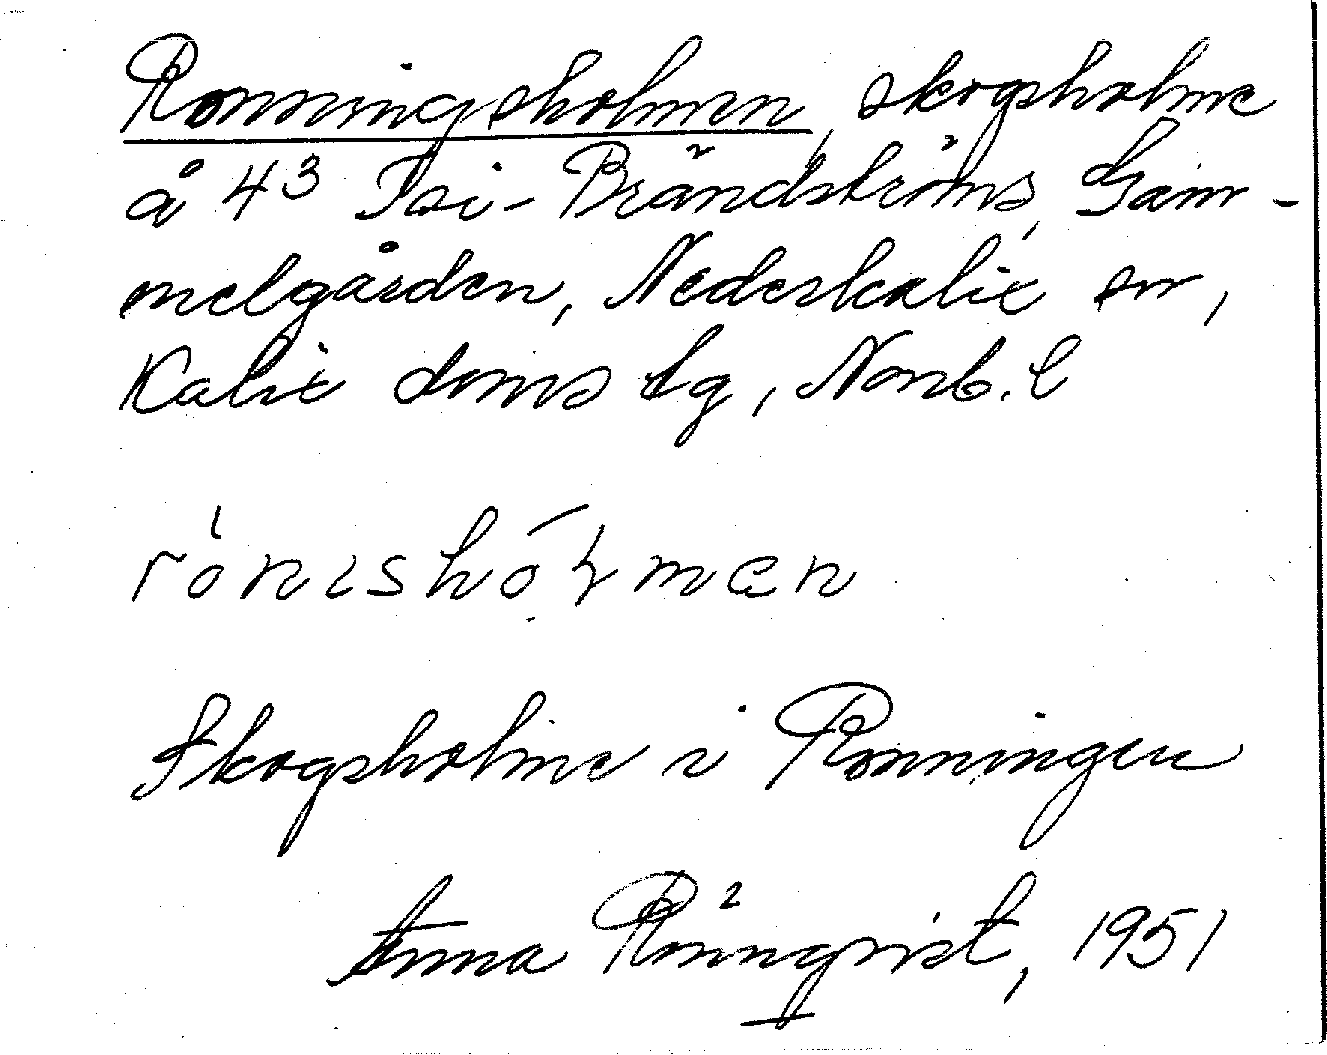 Ronningsholmen, skogsholme
å 4³ Isi-Brändströms, Gam-
melgården, Nederkalix sn,
Kalix doms lg, Norrb. l
rònıshó̄ɽmæn
Skogsholme i Ronningen
Anna Rönnqvist, 1951